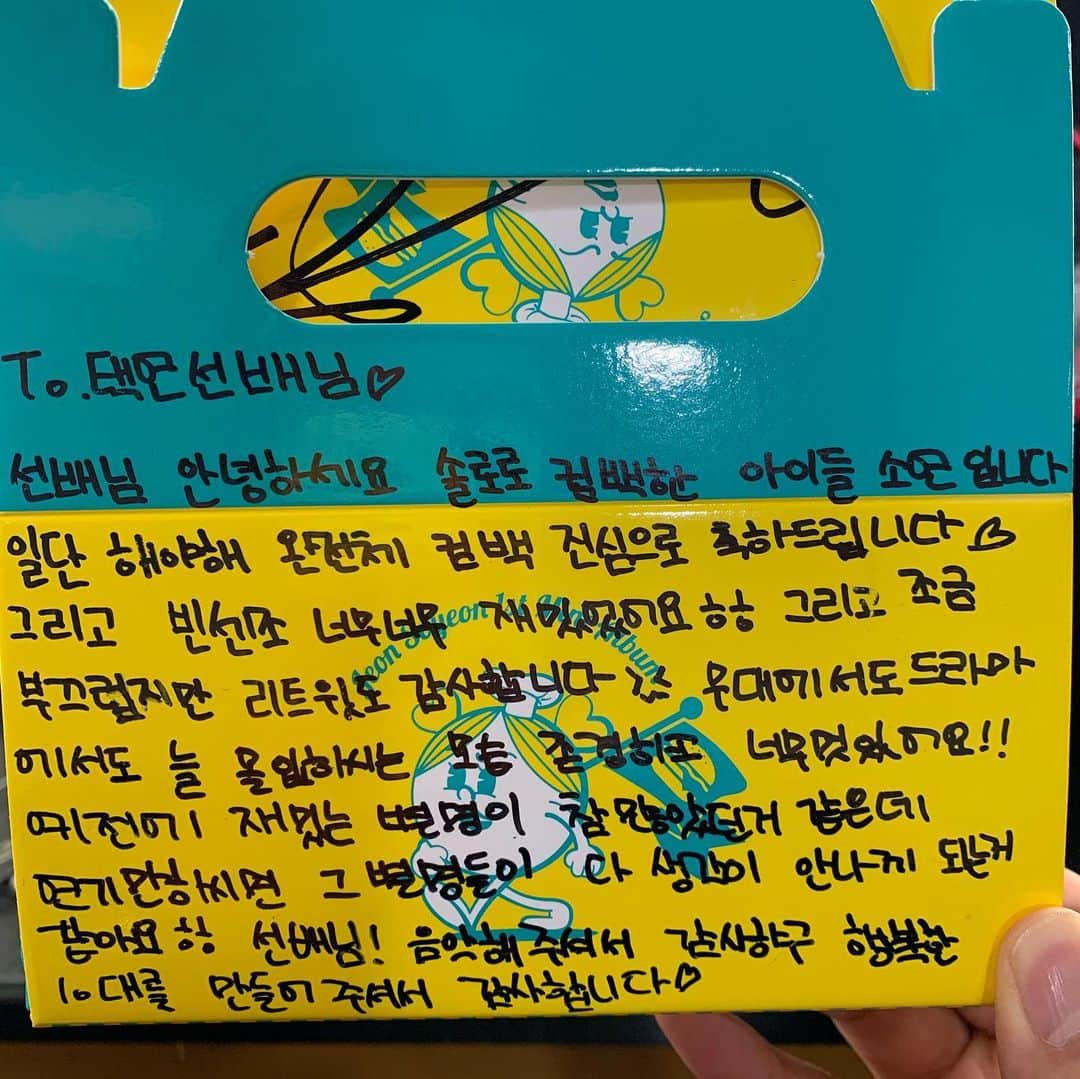 To. 택연선배님♡
선배님 안녕하세요 솔로로 컴백한 아이들 소연입니다
일단 해야해 완전체 컴백 진심으로 축하드립니다♡
그리고 빈센조 너무너무 재밌었어요ㅎㅎ 그리고 조금
부끄럽지만 리트윗도 감사합니다 ㅠㅠ 무대에서도 드라마
에서도 늘 몰입하시는 모습 존경하고 너무멋있어요!!
예전에 재밌는 별명이 참 많았던거 같은데
연기만하시면 그 별명들이 다 생각이 안나게 되는거
같아요ㅎㅎ 선배님! 음악해주셔서 감사하구 행복한
10대를 만들어주셔서 감사합니다♡
Jeon Soyeon 1st Mini Album